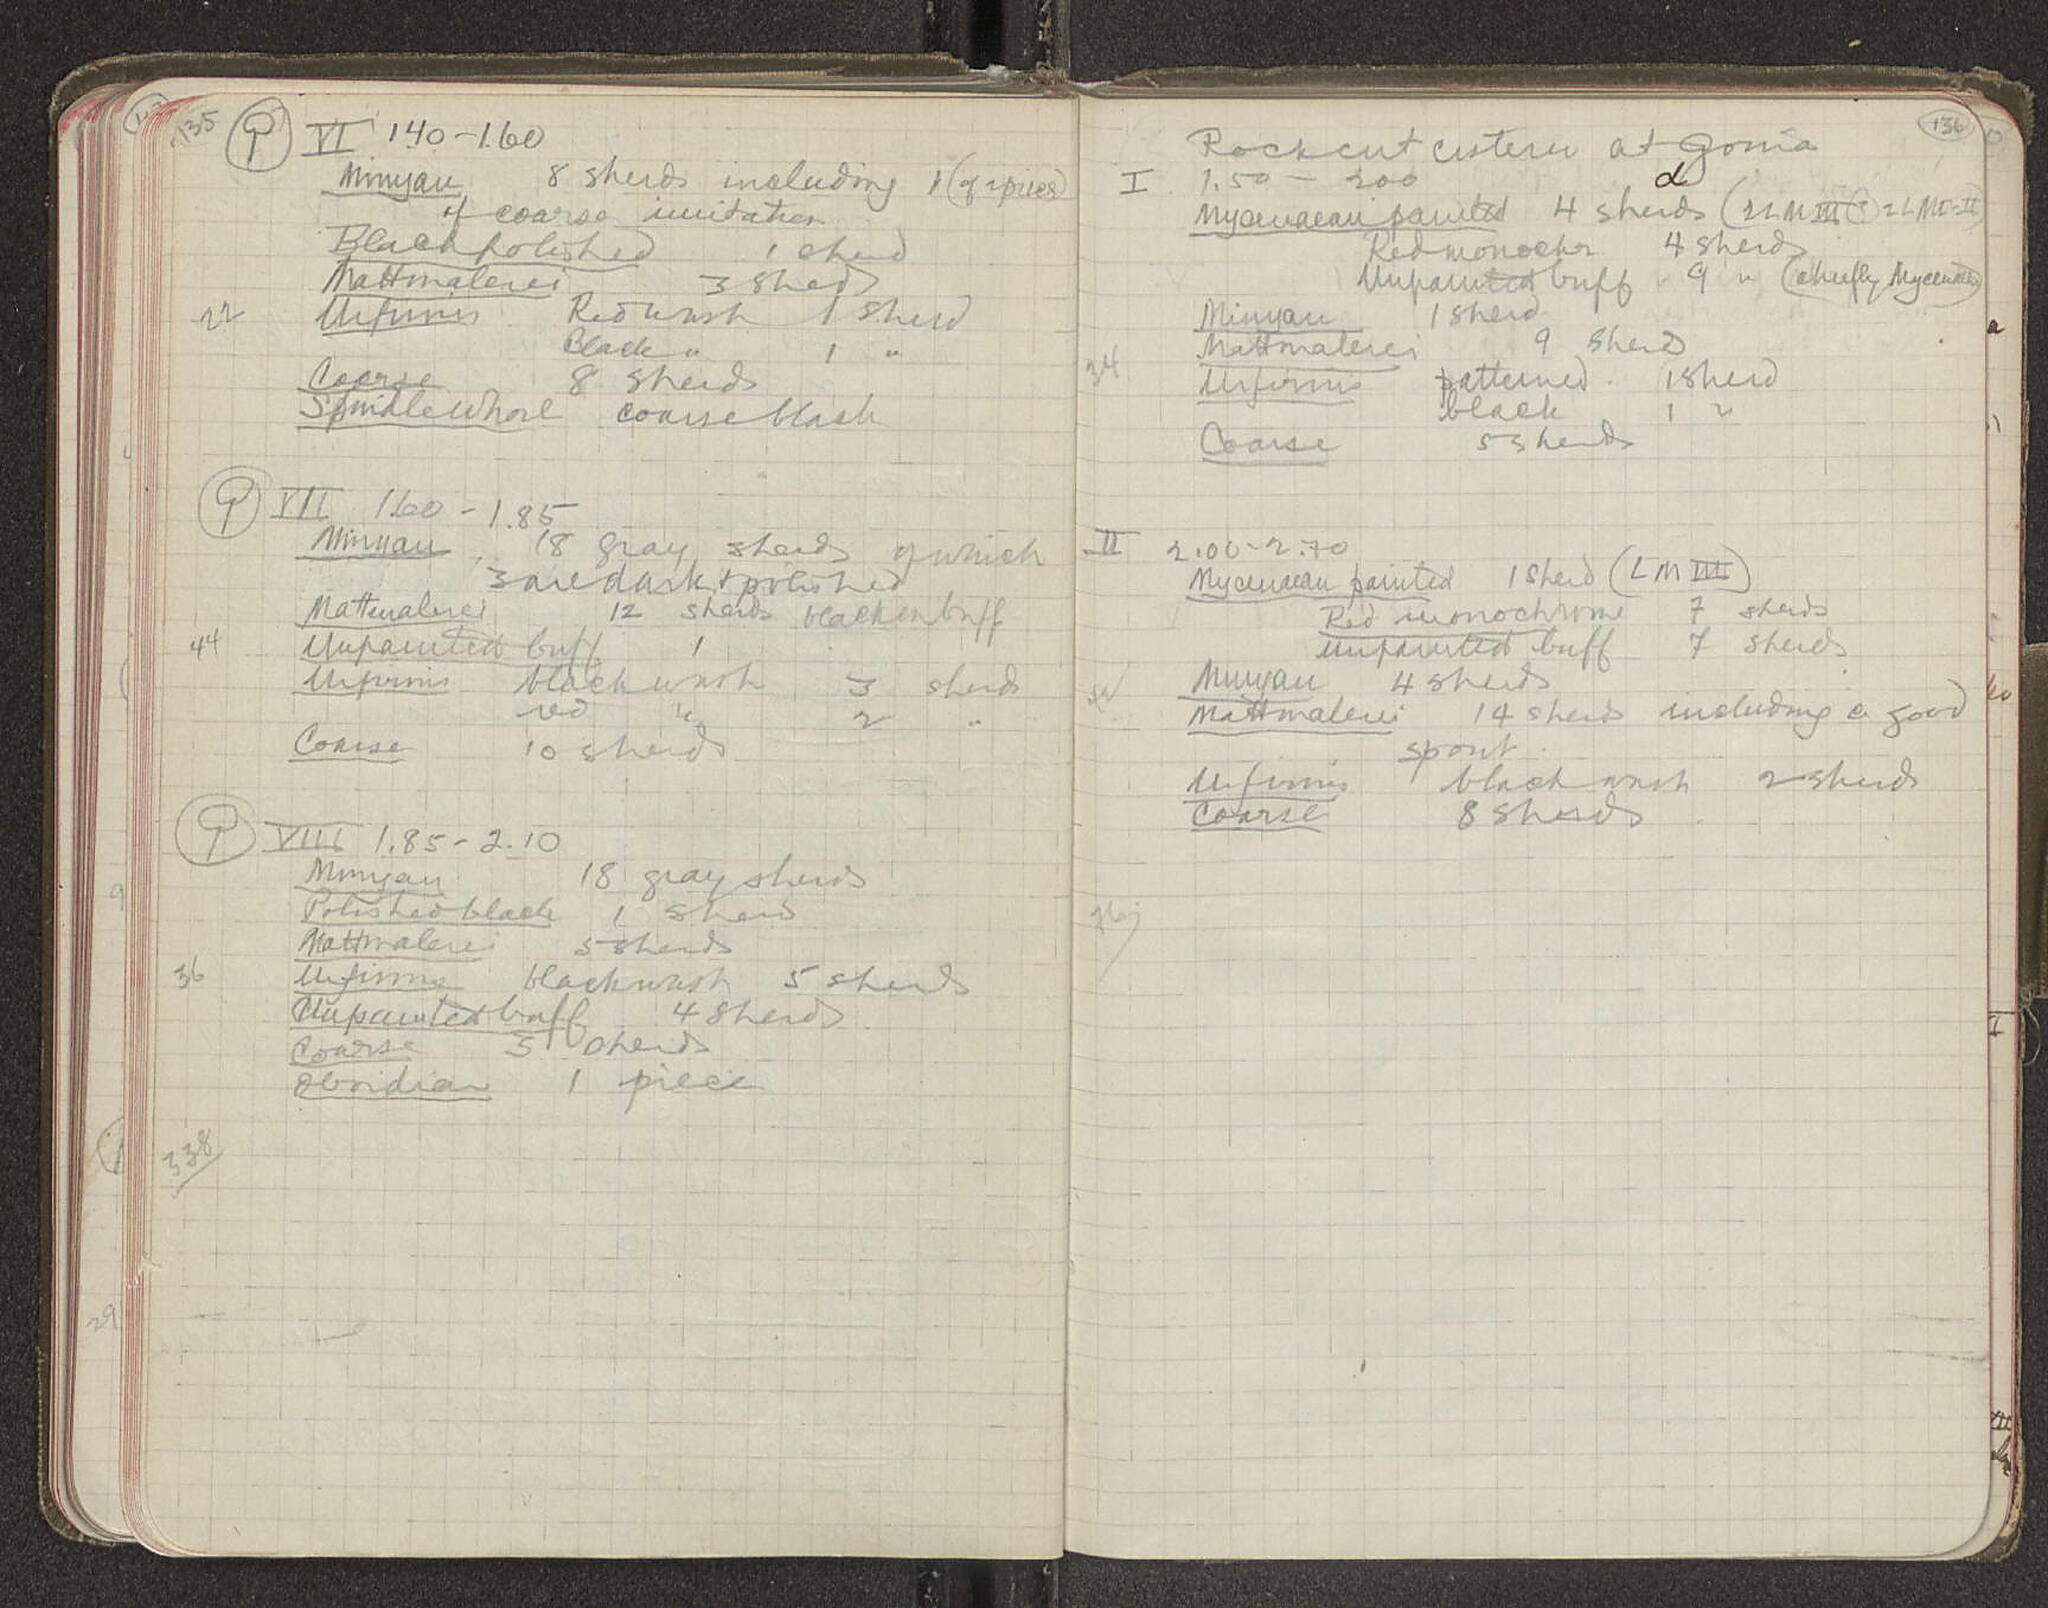 135
Q VI 1.40-1.60
Minyan 8 sherds including 1 (of 2 pieces)
of coarse imitation
Black polished 1 sherd
Mattmalerei 3 sherds
22 Urfirnis Red wash 1 sherd
Black " 1 "
Coarse 8 sherds
Spindle whorl coarse black
Q VII 1.60-1.85
Minyan 18 gray sherds of which
3 are dark & polished
Mattmalerei 12 sherds black on buff
44 Unpainted buff 1
Urfirnis black wash 3 sherds
red " 2 "
Coarse 10 sherds
Q VIII 1.85-2.10
Minyan 18 gray sherds
Polished black 1 sherd
Mattmalerei 5 sherds
36 Urfirnis black wash 5 sherds
Unpainted buff 4 sherds
Coarse 3 sherds
Obsidian 1 piece
338
136
Rock cut cistern at Gonia
α
I 1.50-2.00
Mycenaean painted 4 sherds (2 LM III 2 LM I-II)
Red monochr 4 sherds
Unpainted buff 9 " (chiefly Mycenaean)
Minyan 1 sherd
Mattmalerei 9 sherds
34 Urfirnis patterned 1 sherd
black 1 "
Coarse 5 sherds
II 2.00-2.70
Mycenaean painted 1 sherd (LM III)
Red monochrome 7 sherds
Unpainted buff 7 sherds
Minyan 4 sherds
Mattmalerei 14 sherds including a good
spout
Urfirnis black wash 2 sherds
Coarse 8 sherds